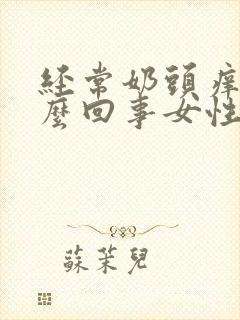 經常奶頭痒
麼回事女性
蘇茉兒